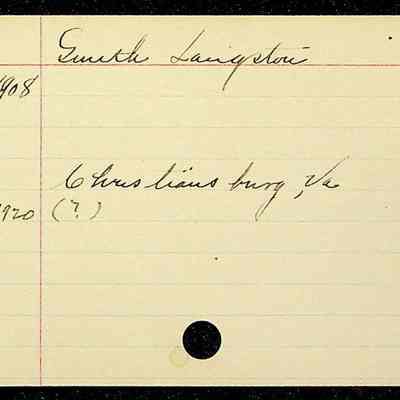 Smith Langston
1908
Christiansburg, Va
1920 (?)